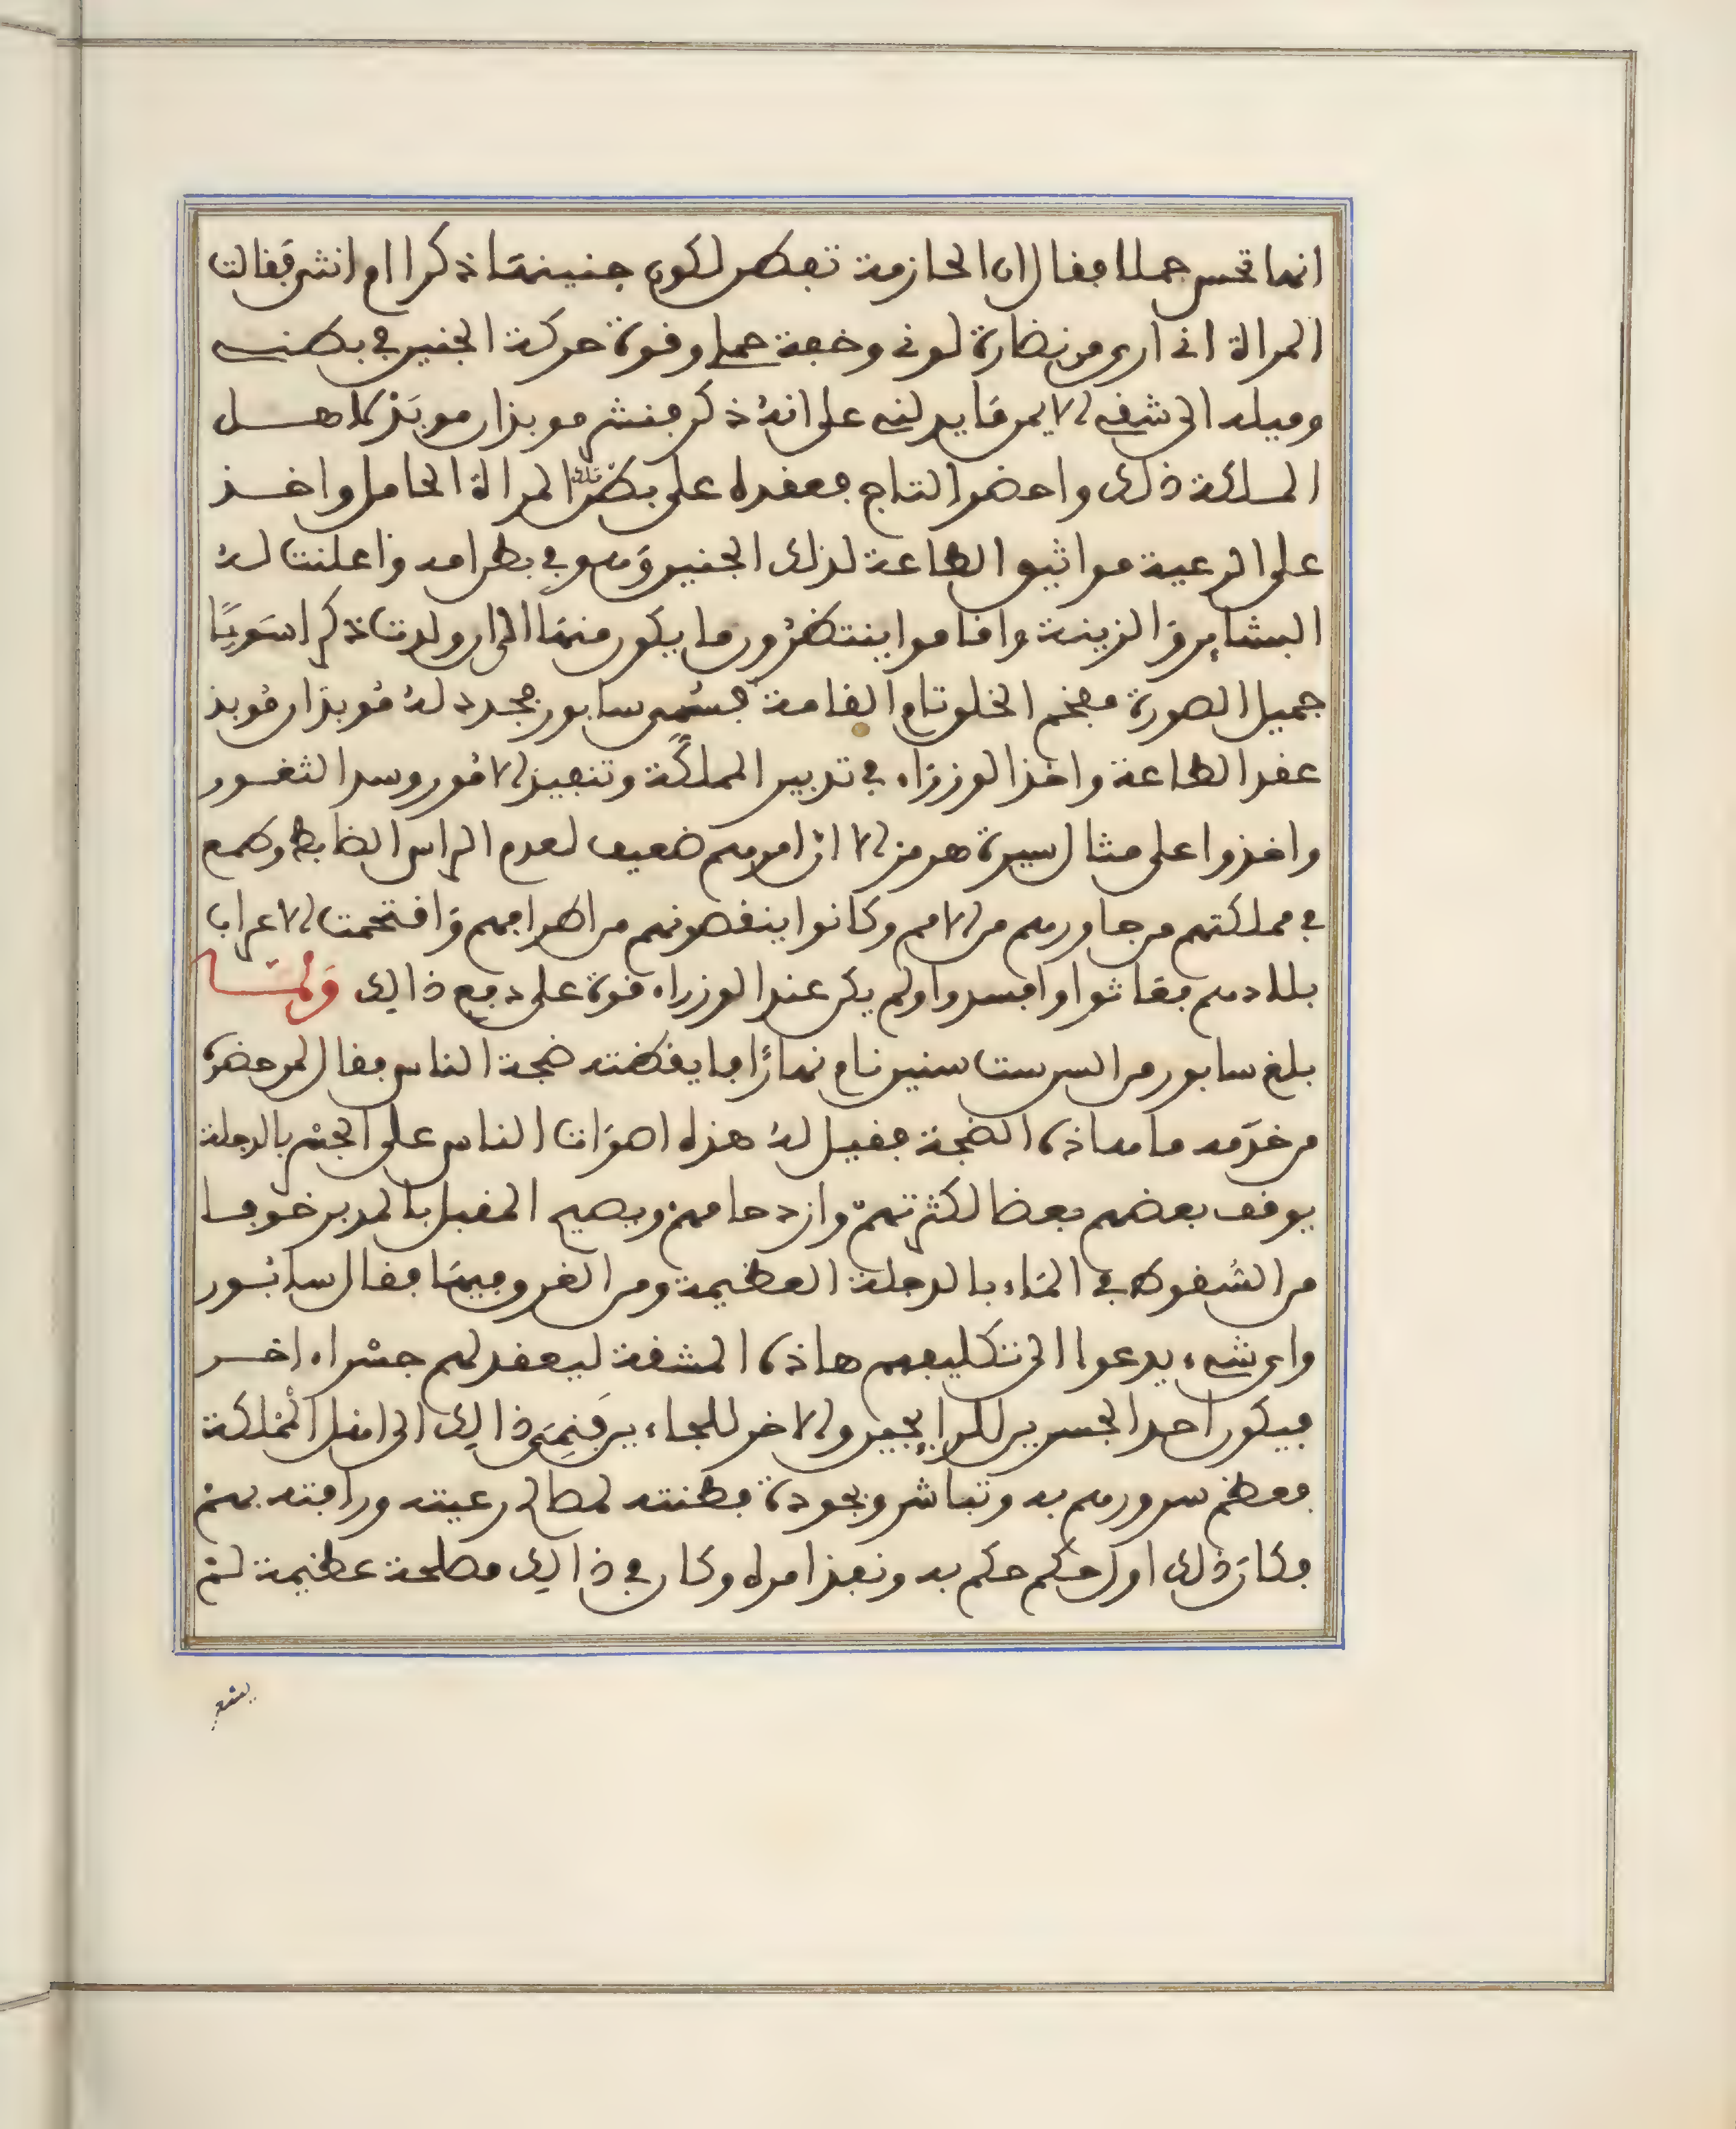 انها تحس حملا فقال ان الحازمة تفطن لكون جنينها ذكرا ام انثى فقالت
المرأة انى ارى من نضارة لونى وخفة حملى وقوة حركة الجنين في بطنى
وميله الى شقى الايمن ما يدلنى على انه ذكر فنشر موبذان موبذ كاهل
المملكة ذلك واحضر التاج فعقده على بطن تلك المراة الحامل واخذ
على الرعية مواثيق الطاعة لذلك الجنين وهو في بطن امه واعلنت له
البشاير والزينة واقاموا ينتظرون ما يكون منها الى ان ولدت ذكرا سويا
جميل الصورة مفخم الخلق تام القامة فسمى سابور فجدد له موبذان موبذ
عقد الطاعة واخذ الوزراء في تدبير المملكة وتنفيذ الامور وسد الثغور
واخذوا على مثال سيرة هرمز الا ان امرهم ضعيف لعدم الراس الضابط وطمع
في مملكتهم من جاورهم من الامم وكانوا ينقصونهم من اطرافهم وافتحمت الاعراب
بلادهم فعاثوا وافسدوا ولم يكن عند الوزراء قوة على دفع ذالك ولما
بلغ سابور من السن ست سنين نام نهارا فايقظته ضجة الناس فقال لمن حضره
من خدمه ما هاذه الضجة فقيل له هذه اصوات الناس على الجسر بالدجلة
يوقف بعضهم بعضا لكثرتهم وازدحامهم ويصيح المقبل بالمدبر خوفا
من السقوط في الماء بالدجلة العظيمة ومن الغرق فيها فقال سابور
واى شىء يدعوا الى تكليفهم هاذه المشقة ليعقد لهم جسرا اخر
فيكون احد الجسرين للرايحين والاخر للجاءين فنمى ذالك الى اهل المملكة
فعظم سرورهم به وتباشروا بجودة فطنته لمصالح رعيته ورافته بهم
فكان ذلك اول حكم حكم به ونفذ امره وكان في ذالك مصلحة عظيمة لم